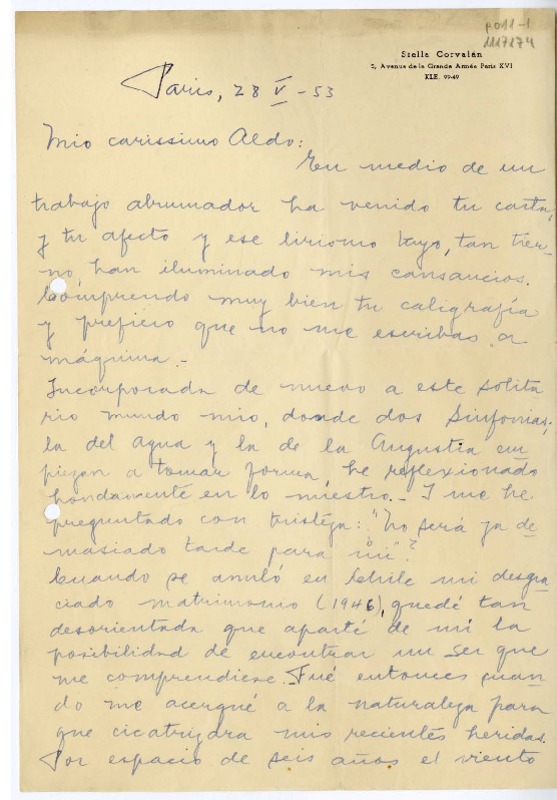 p011-1
1117174
Stella Corvalán
2, Avenue de la Grande Armée Paris XVI
KLE. 99-49
Paris, 28 V - 53
Mio carissimo Aldo:
En medio de un
trabajo abrumador ha venido tu carta,
y tu afecto y ese lirismo tuyo, tan tier-
no, han iluminado mis cansancios.
Comprendo muy bien tu caligrafía
y prefiero que no me escribas a
máquina.-
Incorporada de nuevo a este solita
rio mundo mio, donde dos Sinfonias;
la del agua y la de la Angustia em
piezan a tomar forma, he reflexionado
hondamente en lo nuestro.- I me he
preguntado con tristeza: "No será ya de
masiado tarde para mi"?
Cuando se anuló en Chile mi desgra
ciado matrimonio (1946), quedé tan
desorientada que aparté de mi la
posibilidad de encontrar un ser que
me comprendiese. Fué entonces cuan
do me acerqué a la naturaleza para
que cicatrizara mis recientes heridas.
Por espacio de seis años el viento